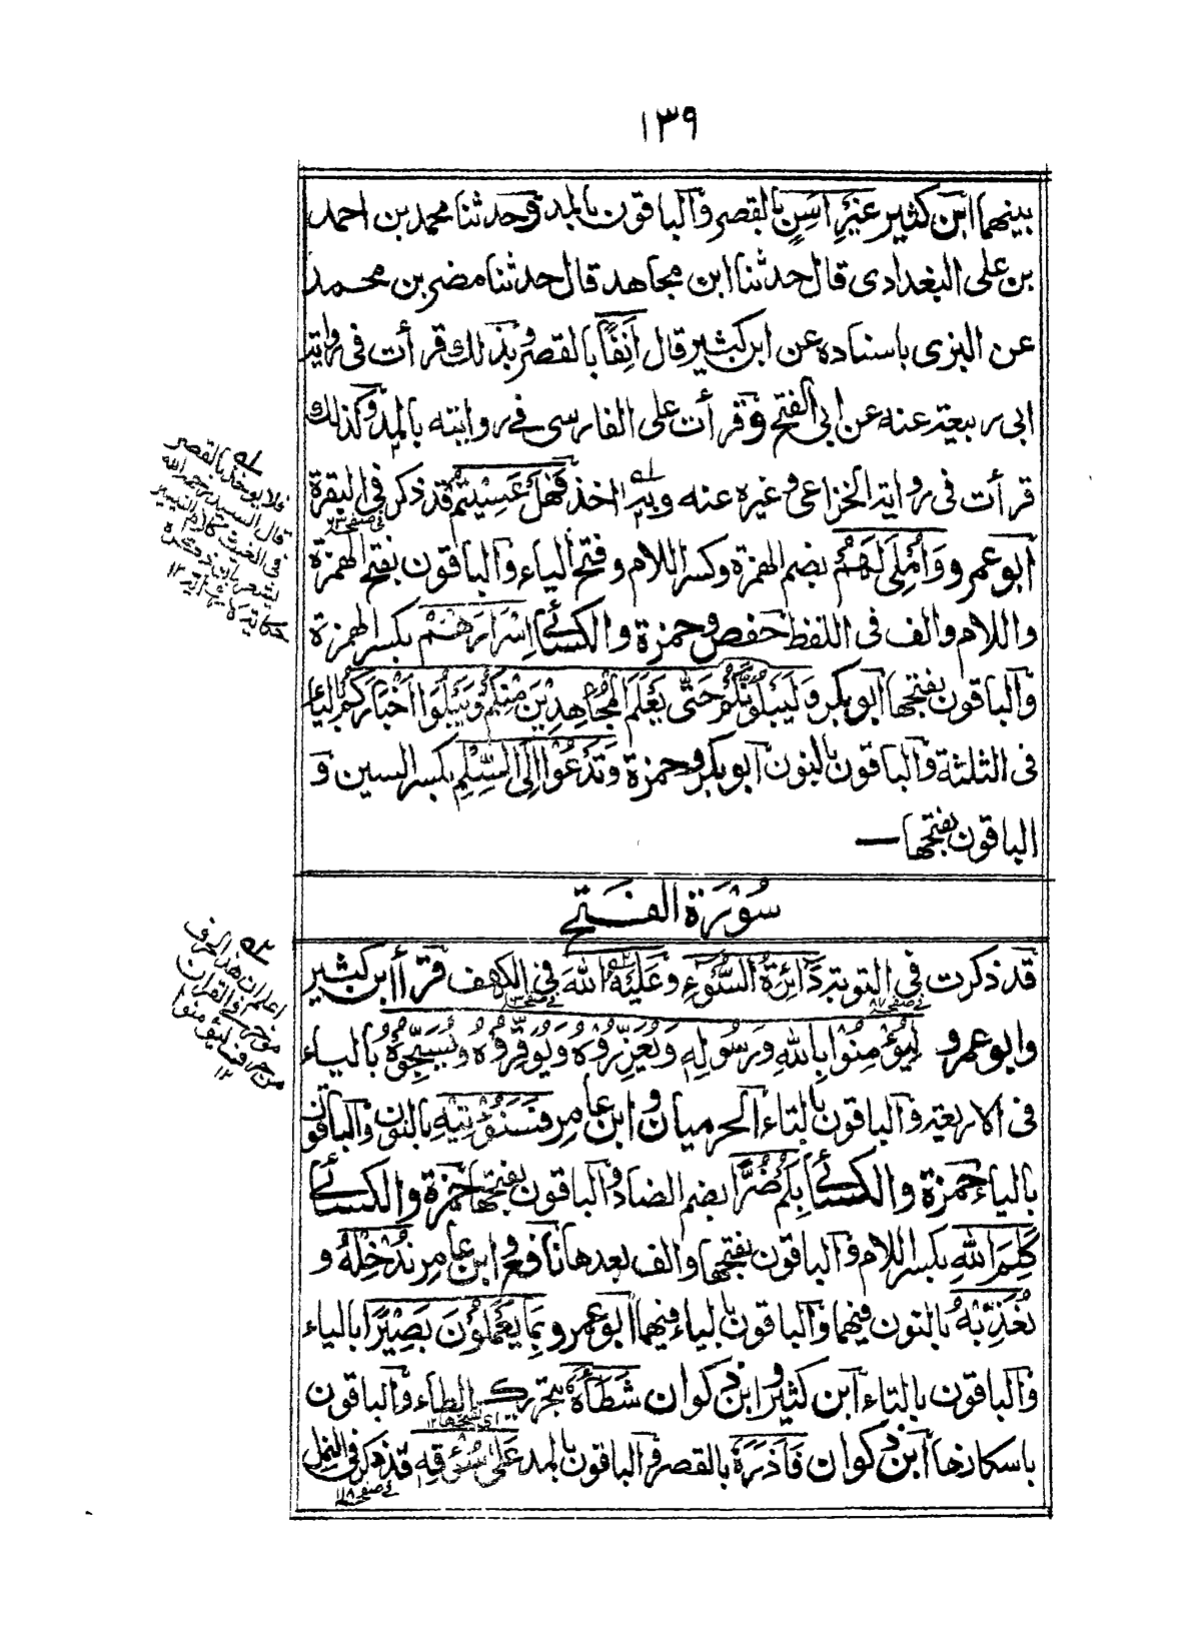 ١٣٩
بينهما ابن كثير غَيْرِ اٰسِنٍ بالقصر والباقون بالمد وحدثنا محمد بن احمد
بن على البغدادى قال حدثنا ابن مجاهد قال حدثنا مضر بن محمد
عن البزى باسناده عن ابن كثير قال اٰنِفًا بالقصر وبذلك قرأت فى رواية
ابى ربيعة عنه عن ابى الفتح وقرأت على الفارسى فى روايته بالمد وكذلك
قرأت فى رواية الخزاعى وغيره عنه وبه اخذ فَهَلْ عَسِيْتُمْ قد ذكر فى البقرة
ابو عمرو وَاُمْلِىَ لَهُمْ بضم الهمزة وكسر اللام وفتح الياء والباقون بفتح الهمزة
واللام والف فى اللفظ حفص وحمزة والكسائى اِسْرَارَهُمْ بكسر الهمزة
والباقون بفتحها ابو بكر وَلَيَبْلُوَنَّكُمْ حَتّٰى يَعْلَمَ الْمُجَاهِدِيْنَ مِنْكُمْ وَيَبْلُوَا اَخْبَارَكُمْ بالياء
فى الثلثة والباقون بالنون ابو بكر وحمزة وَتَدْعُوْا اِلَى السِّلْمِ بكسر السين و
الباقون بفتحها —
سُوْرَة الفَتْح
قد ذكرت فى التوبة دَائِرَةُ السُّوْءِ وعَلَيْهُ اللهَ فى الكهف قرأ ابن كثير
وابو عمرو لِيُؤْمِنُوْا بِاللهِ وَرَسُوْلِهِ وَيُعَزِّرُوْهُ وَيُوَقِّرُوْهُ وَيُسَبِّحُوْهُ بالياء
فى الاربعة والباقون بالتاء الحرميان وابن عامر فَسَنُؤْتِيْهِ بالنون والباقون
بالياء حمزة والكسائى بِكُمْ ضُرًّا بضم الضاد والباقون بفتحها حمزة والكسائى
كَلِمَ اللهِ بكسر اللام والباقون بفتحها والف بعدها نافع وابن عامر نُدْخِلْهُ و
نُعَذِّبْهُ بالنون فيهما والباقون بالياء فيهما ابو عمرو بِمَا يَعْمَلُوْنَ بَصِيْرًا بالياء
والباقون بالتاء ابن كثير وابن ذكوان شَطَأَهُ بتحريك الطاء والباقون
باسكانها ابن ذكوان فَأَزَرَهُ بالقصر والباقون بالمد عَلٰى سُوْقِهِ قد ذكر فى النمل
فى صفحه ١١٨
فلا يوخذ بالقصر
قال السيد رحمه الله
فى الغيث كلام التيسير
اعلم ان هذا الحرف
فى القران
١٢